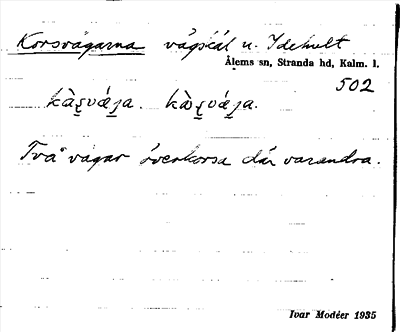 Korsvägarna vägskäl u. Idehult
Ålems sn, Stranda hd, Kalm. l.
502
kàʂvája. kàʂvája.
Två vägar överkorsa där varandra.
Ivar Modéer 1935